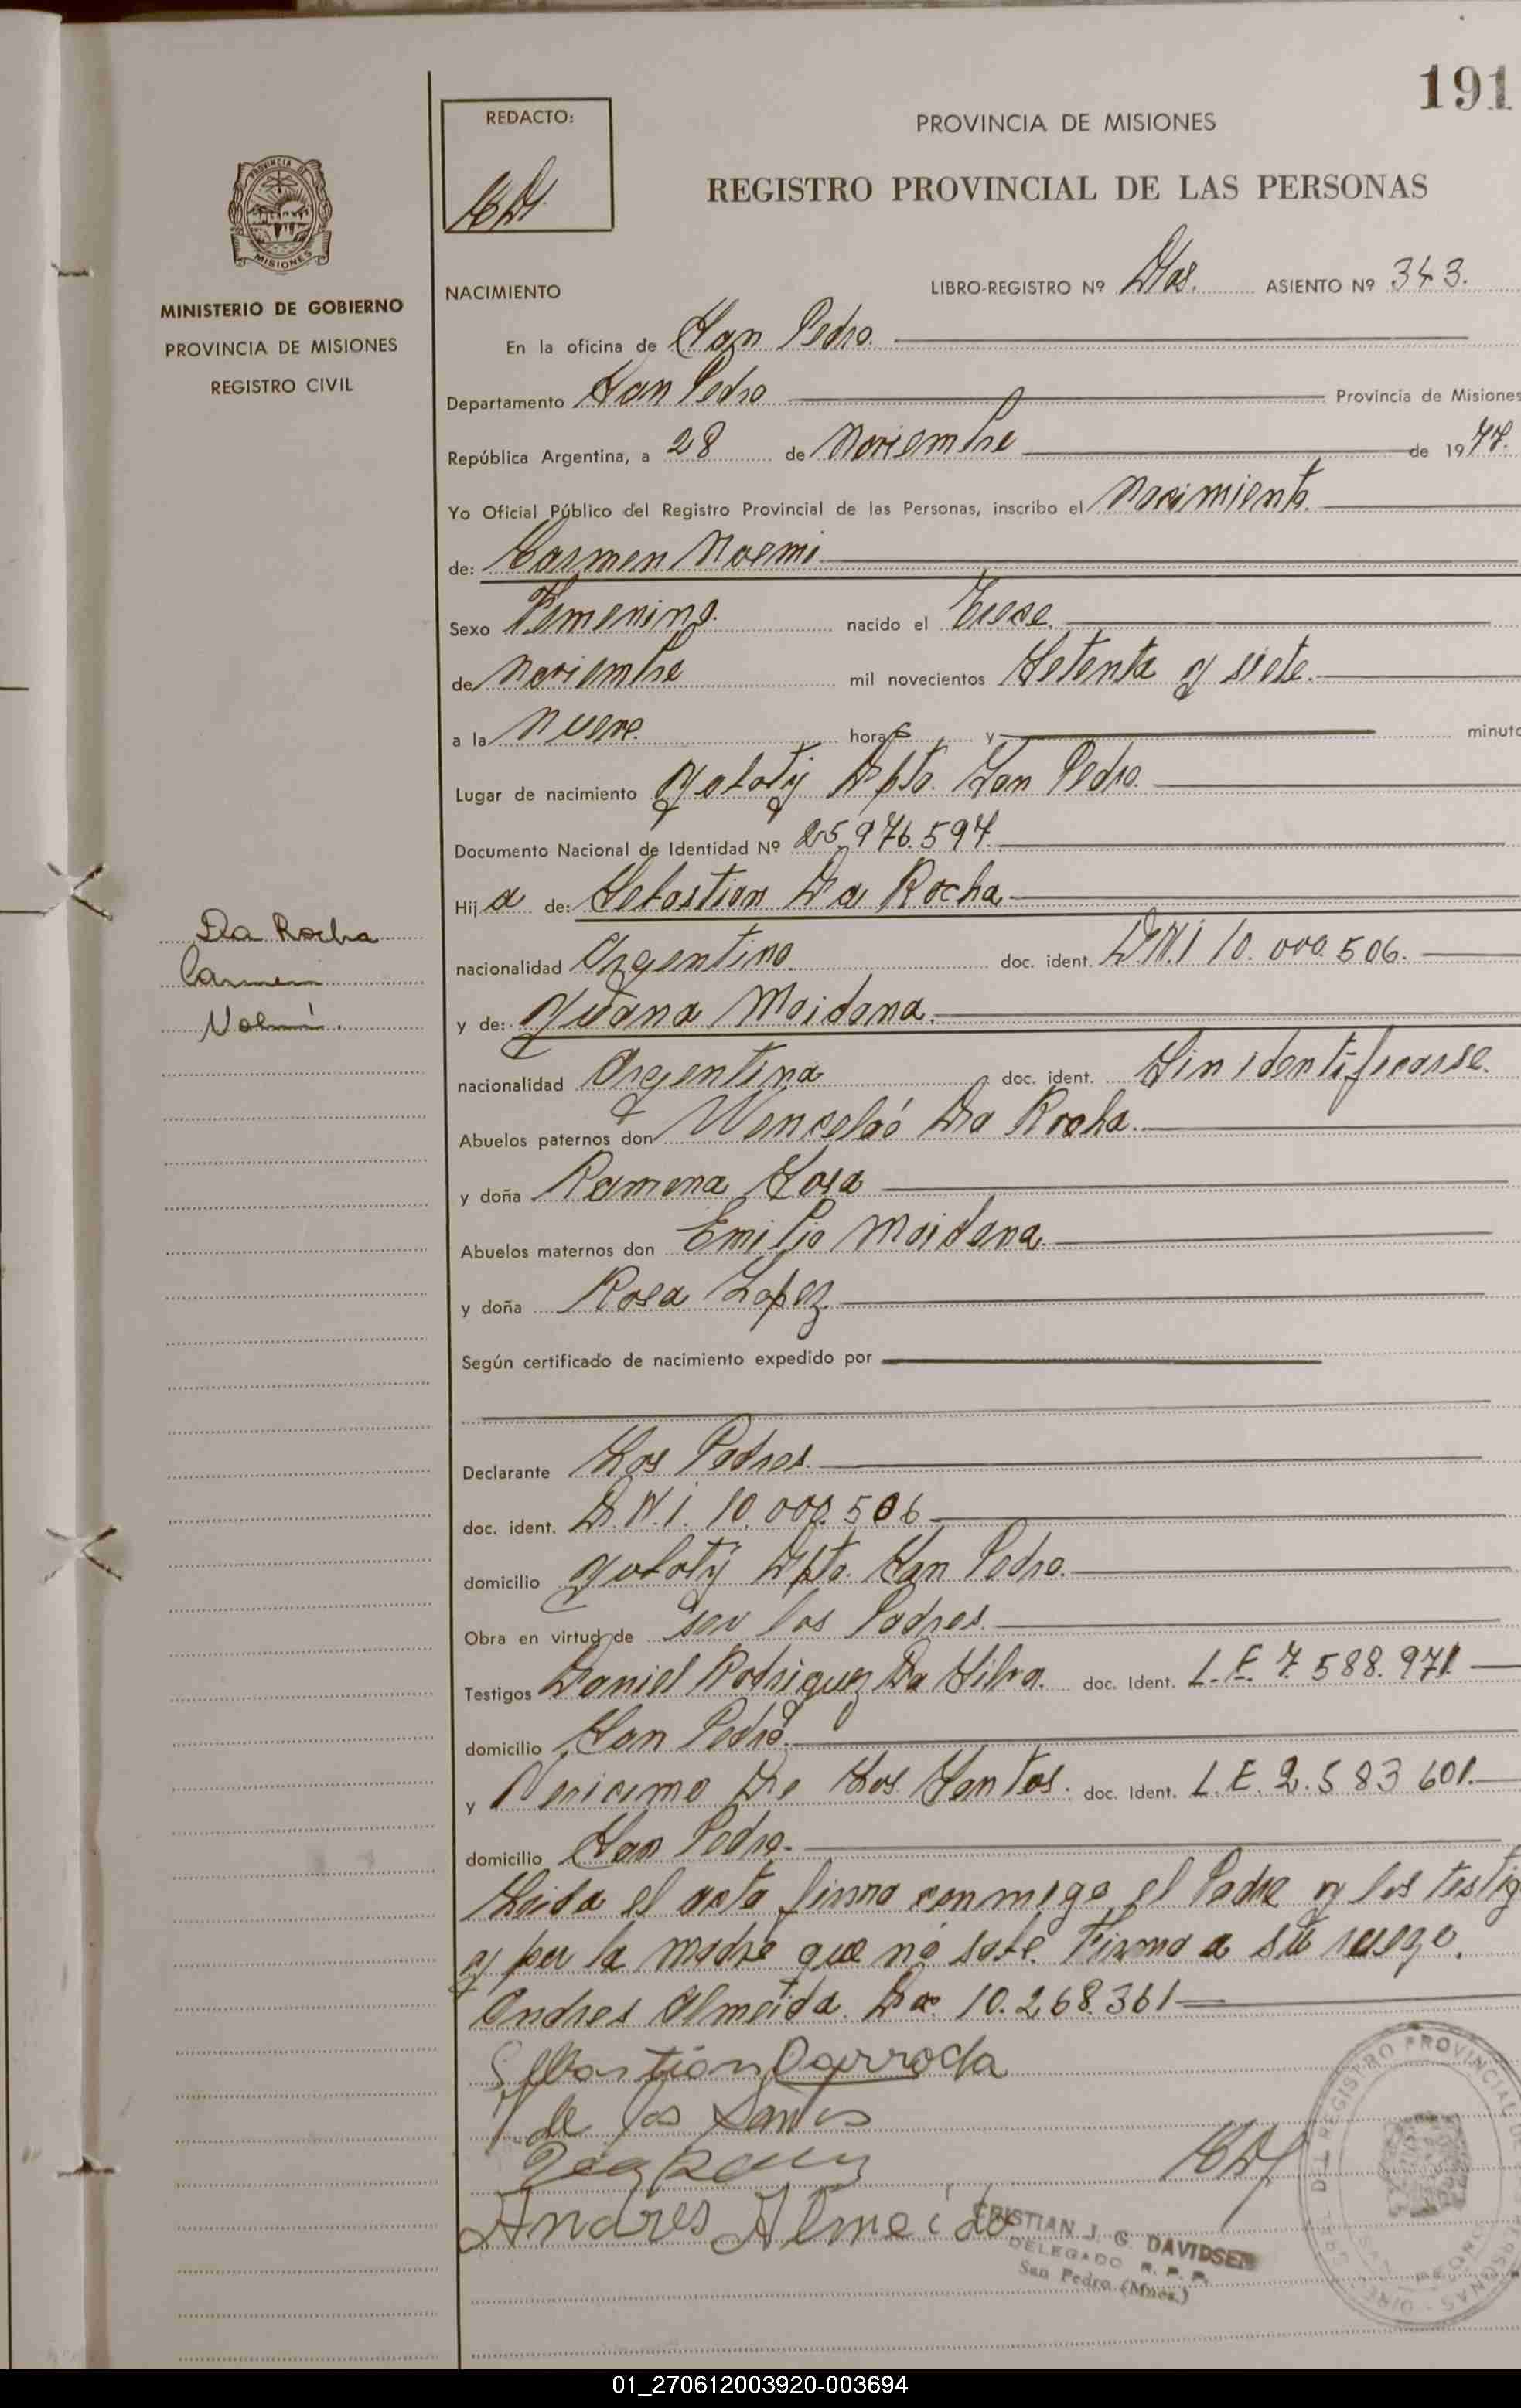 191
REDACTO:
PROVINCIA DE MISIONES
REGISTRO PROVINCIAL DE LAS PERSONAS
PROVINCIA DE
MISIONES
MINISTERIO DE GOBIERNO
PROVINCIA DE MISIONES
REGISTRO CIVIL
NACIMIENTO
LIBRO-REGISTRO Nº Dos. ASIENTO Nº 343.
En la oficina de San Pedro.
Departamento San Pedro Provincia de Misiones
República Argentina, a 28 de Noviembre de 1977.
Yo Oficial Público del Registro Provincial de las Personas, inscribo el Nacimiento.
de: Carmen Noemi
Sexo Femenino. nacido el Trece.
de Noviembre mil novecientos Setenta y siete.
a la Nueve. horas y minuto
Lugar de nacimiento Dpto. San Pedro.
Documento Nacional de Identidad Nº 25.976.597.
Hij a de: Sebastian Da Rocha
nacionalidad Argentino. doc. ident. D.N.I 10.000.506.
y de: Juana Maidana.
nacionalidad Argentina doc. ident. Sin identificarse.
Abuelos paternos don Wenceláo Da Rocha.
y doña Ramona Sosa
Abuelos maternos don Emilio Maidana.
y doña Rosa Lopez.
Según certificado de nacimiento expedido por
Declarante Los Padres.
doc. ident. D.N.I. 10.000.506
domicilio Dpto. San Pedro.
Obra en virtud de ser los Padres.
Testigos Daniel Rodriguez Da Silva. doc. Ident. L.E. 7.588.971
domicilio San Pedro.
y De Los Santos. doc. Ident. L.E. 2.583.601.
domicilio San Pedro.
Leida el acta firma conmigo el Padre y los testig
y por la madre que no sabe Firma a su ruego.
Andres Almeida. 10.268.361
Sebastian Darroda
de los Santos
Andres Almeida
CRISTIAN J. G. DAVIDSEN
DELEGADO R. P. P.
San Pedro (Mnes.)
Da Rocha
Carmen
Noemí.
01_270612003920-003694